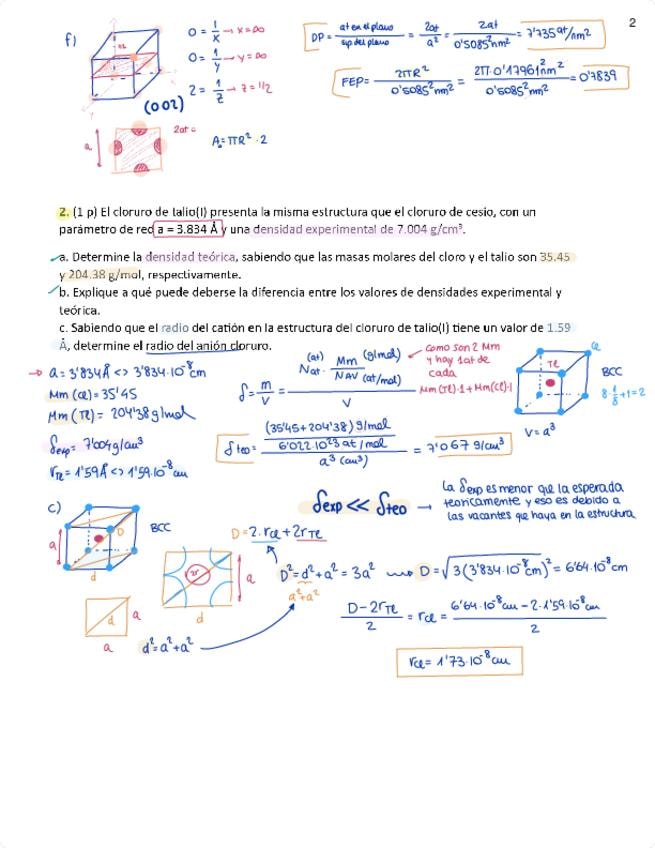 2
f)
0 = 1/x → x = ∞
0 = 1/y → y = ∞
2 = 1/z → z = 1/2
(002)
DP = at en el plano / sup del plano = 2at / a² = 2at / 0'5085² nm² = 7'735 at/nm²
FEP = 2πR² / 0'5085² nm² = 2π·0'17961² nm² / 0'5085² nm² = 0'7839
a
2at
A = πR² · 2
2. (1 p) El cloruro de talio(I) presenta la misma estructura que el cloruro de cesio, con un
parámetro de red a = 3.834 Å y una densidad experimental de 7.004 g/cm³.
a. Determine la densidad teórica, sabiendo que las masas molares del cloro y el talio son 35.45
y 204.38 g/mol, respectivamente.
b. Explique a qué puede deberse la diferencia entre los valores de densidades experimental y
teórica.
c. Sabiendo que el radio del catión en la estructura del cloruro de talio(I) tiene un valor de 1.59
Å, determine el radio del anión cloruro.
→ a = 3'834Å <> 3'834·10⁻⁸ cm
Mm (Cl) = 35'45
Mm (Tl) = 204'38 g/mol
δexp = 7'004 g/cm³
rTl = 1'59Å <> 1'59·10⁻⁸ cm
δ = m/V = (at) Nat · Mm (g/mol) / NAV (at/mol) / V
como son 2 Mm
y hay 1at de
cada
Mm(Tl)·1 + Mm(Cl)·1
Cl
Tl
BCC
8·1/8+1=2
V = a³
δteo = (35'45+204'38) g/mol / 6'022·10²³ at/mol / a³ (cm³) = 7'067 g/cm³
δexp << δteo →
la δexp es menor que la esperada
teóricamente y eso es debido a
las vacantes que haya en la estructura
c)
BCC
a
D
d
D = 2·rCl + 2rTl
D² = d² + a² = 3a²
a²+a²
D = √3(3'834·10⁻⁸ cm)² = 6'64·10⁻⁸ cm
a
d
d
a
a
d² = a² + a²
D − 2rTl / 2 = rCl = 6'64·10⁻⁸ cm − 2·1'59·10⁻⁸ cm / 2
rCl = 1'73·10⁻⁸ cm